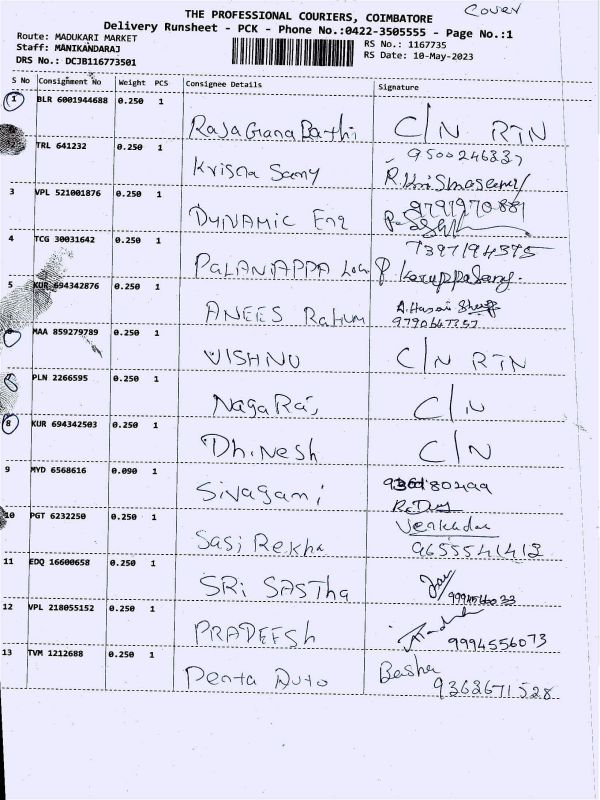 Cover
THE PROFESSIONAL COURIERS, COIMBATORE
Delivery Runsheet - PCK - Phone No.:0422-3505555 - Page No.:1
Route: MADUKARI MARKET
Staff: MANIKANDARAJ
DRS No.: DCJB116773501
RS No.: 1167735
RS Date: 10-May-2023
S No Consignment No Weight PCS Consignee Details Signature
1 BLR 6001944688 0.250 1 RajaGanaPathi C/N RTN
TRL 641232 0.250 1 Krisna Samy 9500246337
3 VPL 521001876 0.250 1 DYNAMIC Eng 9791970889
4 TCG 30031642 0.250 1 PALANIAPPA 7397194375
P. Karuppasamy.
5 KUR 694342876 0.250 1 ANEES Rahum A.Hasan
MAA 859279789 0.250 1 VISHNU C/N RTN
PLN 2266595 0.250 1 NagaRaj C/N
8 KUR 694342503 0.250 1 Dhinesh C/N
9 MYD 6568616 0.090 1 Sivagami
10 PGT 6232250 0.250 1 Sasi Rekha Venkadan
9655541412
11 EDQ 16600658 0.250 1 SRi SASTha
12 VPL 218055152 0.250 1 PRADEESh 9994556073
13 TVM 1212688 0.250 1 Denta Auto Basha
9363671528